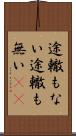 途轍もな
い途轍も
無い